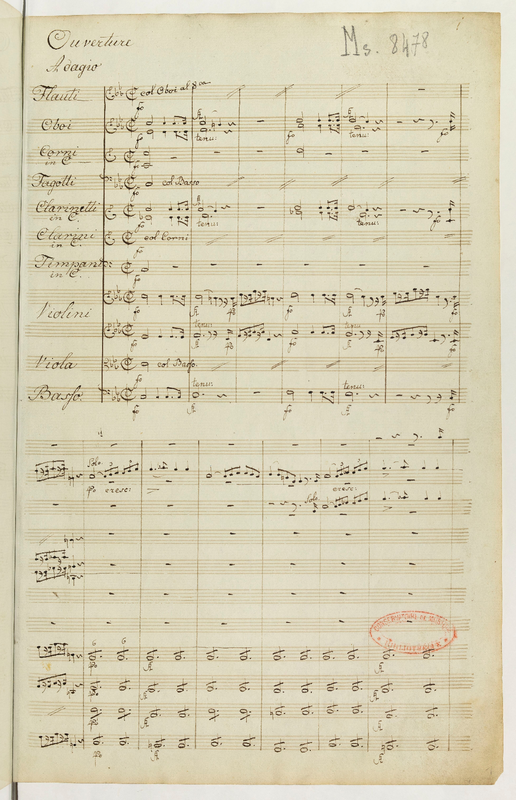 Ouverture
Adagio
Ms. 8478
1
Flauti col Oboi al 8va
Oboi
tenu: tenu:
Corni
in C.
Fagotti col Basso
Clarinetti
in C.
tenu: tenu:
Clarini col Corni
in C.
Timpani
in C.
Violini
tenu: tenu:
Viola col Basso.
Basso
tenu: tenu:
Solo
cresc:
Solo
cresc:
BIBLIOTHÈQUE